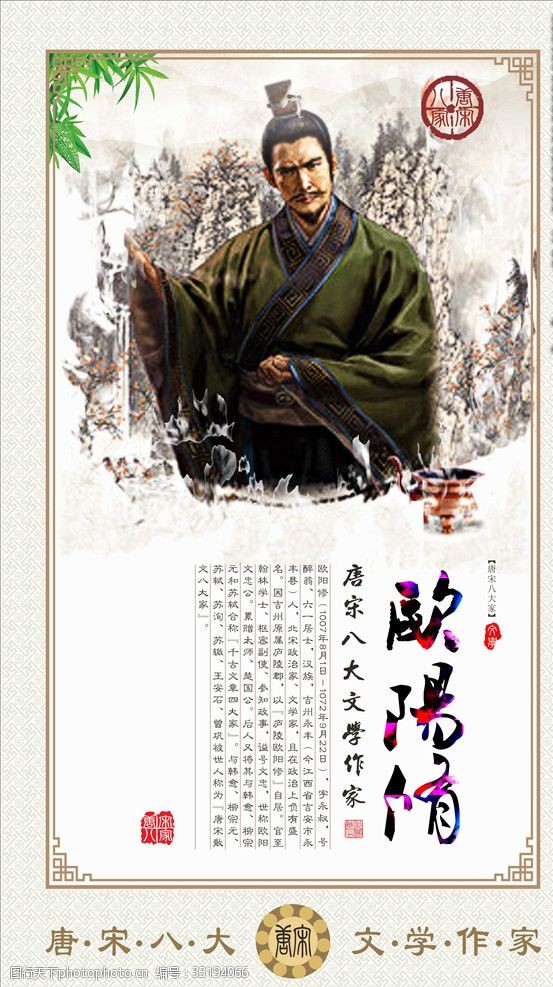 唐宋八家
【唐宋八大家】
歐陽修
唐宋八大文學作家
欧阳修（1007年8月1日-1072年9月22日），字永叔，号
醉翁、六一居士，汉族，吉州永丰（今江西省吉安市永
丰县）人，北宋政治家、文学家，且在政治上负有盛
名。因吉州原属庐陵郡，以『庐陵欧阳修』自居。官至
翰林学士、枢密副使、参知政事，谥号文忠，世称欧阳
文忠公。累赠太师、楚国公。后人又将其与韩愈、柳宗
元和苏轼合称『千古文章四大家』。与韩愈、柳宗元、
苏轼、苏洵、苏辙、王安石、曾巩被世人称为『唐宋散
文八大家』。
唐·宋·八·大
唐宋
文·学·作·家
图行天下photophoto.cn 编号：33194066